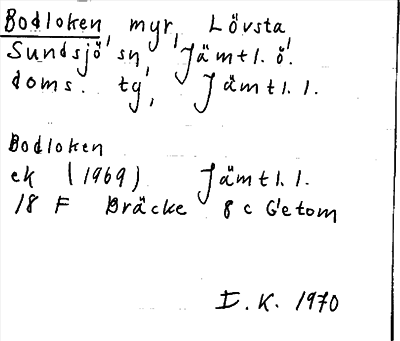 Bodloken, myr, Lövsta,
Sundsjö sn, Jämtl. ö.
doms. tg, Jämtl. l.
Bodloken
ek (1969) Jämtl. l.
18 F Bräcke 8 c Getom
I. K. 1970